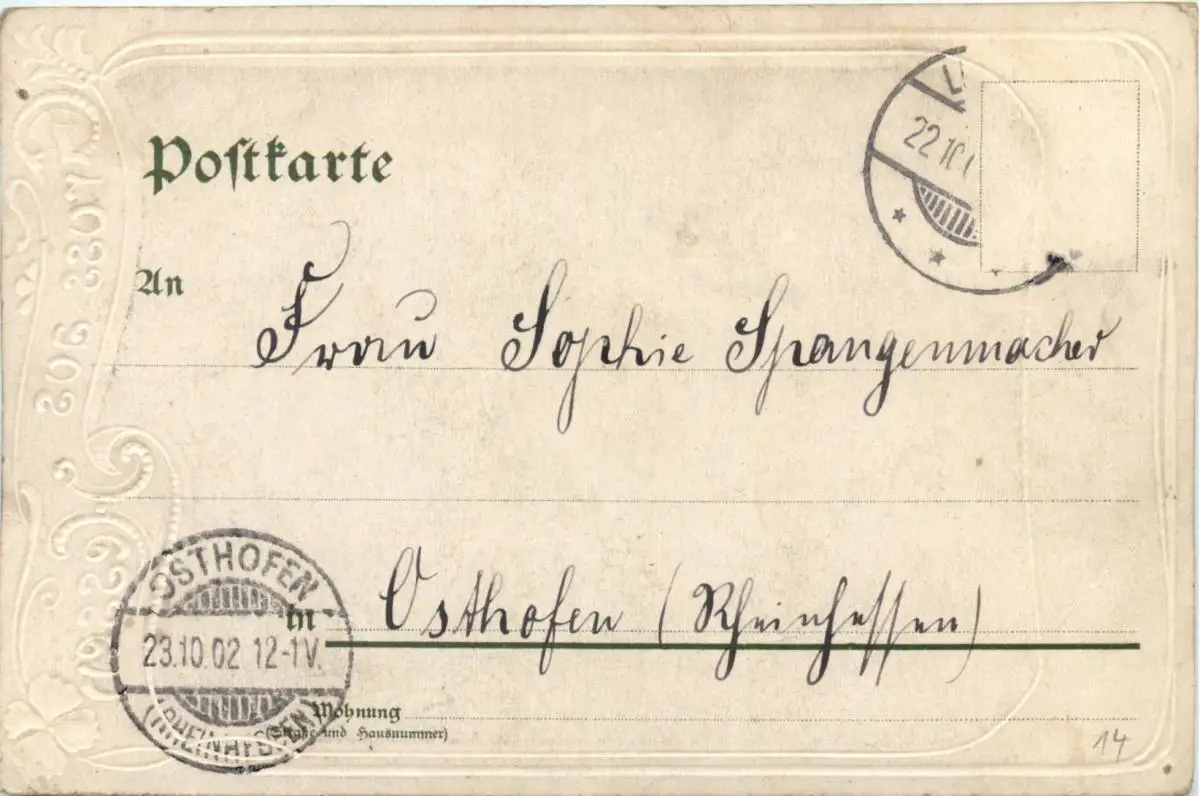 Postkarte
22.10.
An
Frau Sophie Spangenmacher
OSTHOFEN
23.10.02 12-1V.
(RHEINHESSEN)
in Osthofen (Rheinhessen)
Wohnung
(Straße und Hausnummer)
14